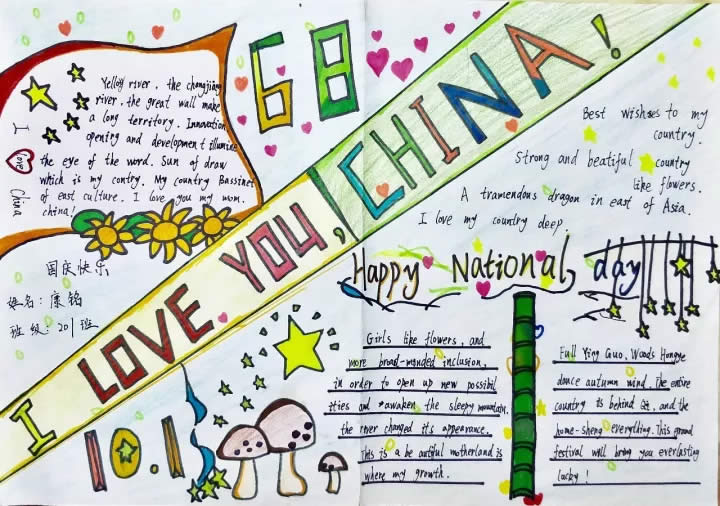 68
I LOVE YOU, CHINA!
I love China
Yellow river, the changjiang
river, the great wall make
a long territory. Innovation
opening and development illumine
the eye of the word. Sun of draw
which is my contry. My country Bassines
of east culture. I love you my mom.
china!
国庆快乐
姓名:康铭
班级:201班
10.1
Best wishses to my
country.
Strong and beatiful country
like flowers.
A tramendous dragon in east of Asia.
I love my country deep.
Happy National day
Girls like flowers, and
more broad-minded inclusion,
in order to open up new possibil
ities and awaken the sleepy mountain,
the river changed its appearance.
This is a be autiful motherland is
where my growth.
Full Ying Guo, Woods Hongye
dance autumn wind. The entire
country is behind and the
home-sheng everything. This grand
festival will bring you everlasting
lucky!